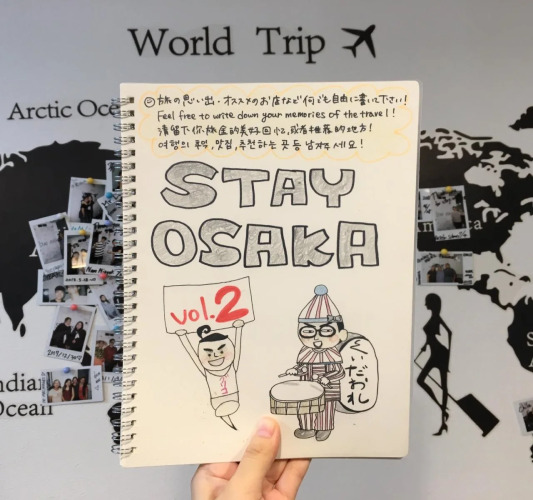 World Trip
Arctic Oce
☺旅の思い出・オススメのお店など何でも自由に書いて下さい!
Feel free to write down your memories of the travel!
請留下你旅途的美好回憶,或者推薦的地方!
여행의 추억, 맛집, 추천하는 곳 등 남겨주세요!
STAY
OSAKA
vol.2
くいだおれ
Indian
Ocean